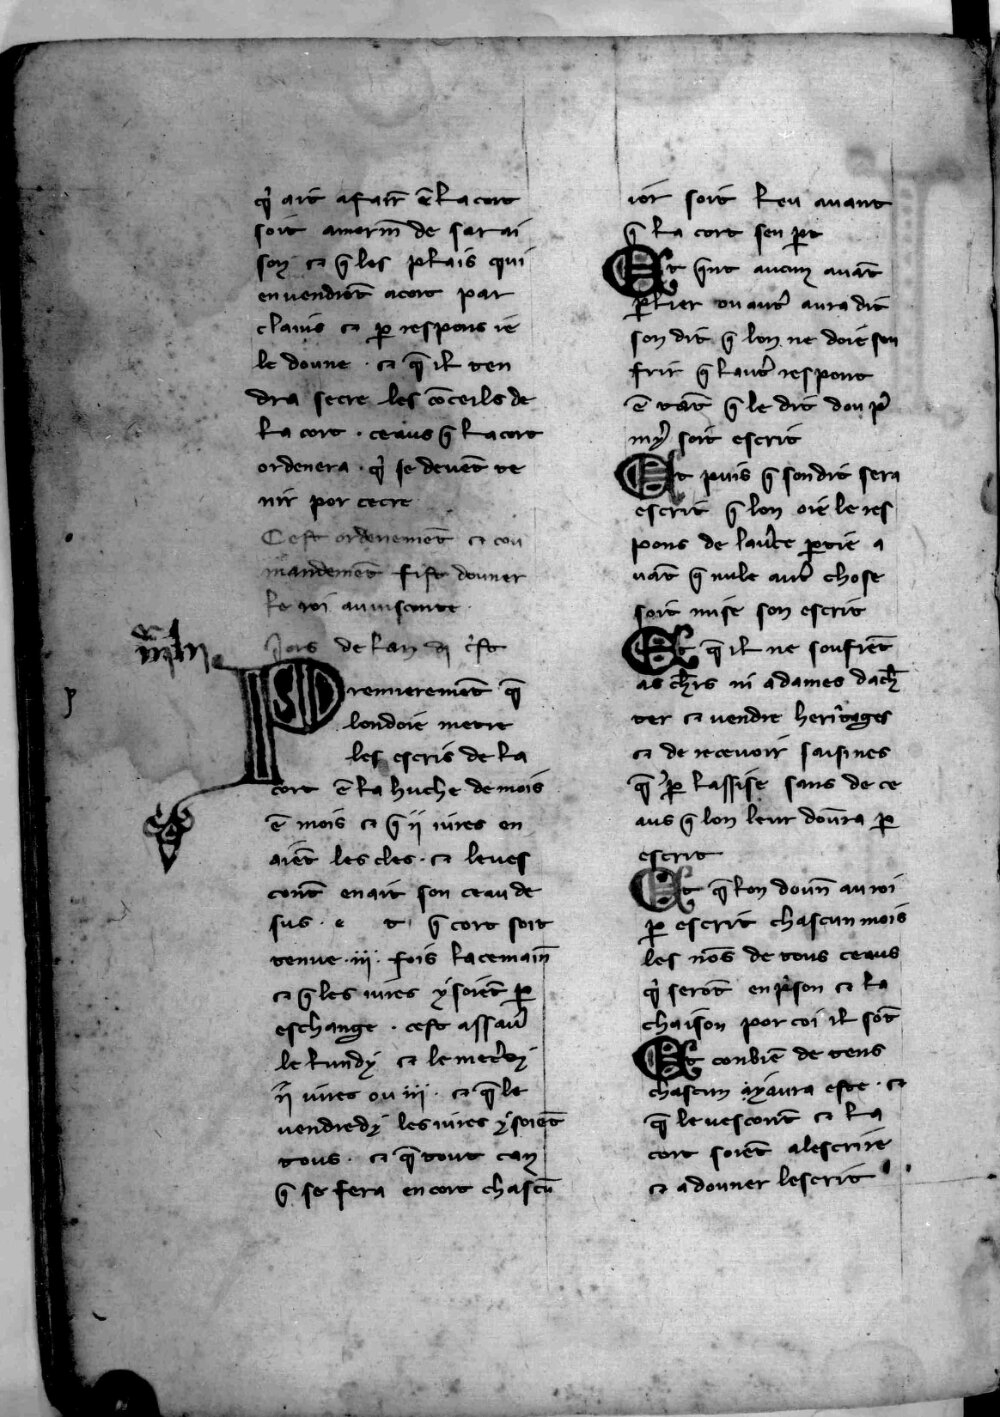 q̾ ait afaire ẽ la cort
soit amerm̃ de sa rai
son ⁊ q̃ les plais qui
en vendrõt a cort par
clains ⁊ ꝑ respons ie
le doune · ⁊ q̃ il ten
dra secre les cõceils de
la cort · ceaus q̃ la cort
ordenera · q̾ se deuẽt te
nir por cecre
Cest ordenemẽt ⁊ cou
mandemẽt fist douner
le roi au uisconte
Iors de lan d c̾st
Premieremẽt q̃
lon doie metre
les escris de la
cort ẽ la huche de mois
ẽ mois ⁊ q̃ ii iures en
aiẽt les cles · ⁊ le ues
conť en ait son ceau de
sus · e t q̃ cort soit
tenue · iii · fois la cemaiñ
⁊ q̃ les iures y soiẽt ꝑ
eschange · cest assau̾
le lundy ⁊ le mecrdy
ii iures ou iii · ⁊ q̃ le
uendredy les iures y soiẽt
tous · ⁊ q̃ tout can
q̃ se fera en cort chascũ
ior soit leu auant
q̃ la cort sen ꝑt
Et q̃nt aucun auãt
ꝑlier ou aut̾ aura dit
son dit q̃ lon ne doie sou
frir q̃ laut̾ respont
ẽ tãt q̃ le dit dou p̾
my̾ soit escrit
Et puis q̃ son dit sera
escrit q̃ lon oie le res
pons de laut̾e ꝑtie a
uãt q̃ nule aut̾ chose
soit mise son escrit
Et q̃ il ne soufrẽt
as ch̃rs ni a dames dach̾
ter ⁊ uendre heritages
⁊ de receuoir saisines
q̃ ꝑ lassise sans de ce
aus q̃ lon leur dõra ꝑ
escrit
Et q̃ lon douñ au roi
ꝑ escrit chascun mois
les nõs de tous ceaus
q̾ serõt en p̾son ⁊ la
chaison por coi il sõt
Et conbiẽ de tens
chascun y aura este · ⁊
q̃ le uescont ⁊ la
cort soiẽt a lescrire
⁊ a douner lescrit